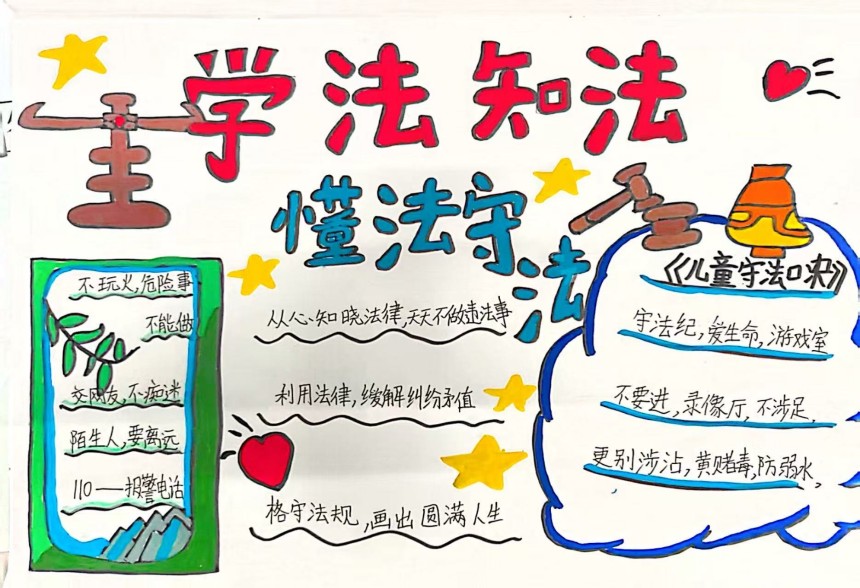 学法知法
懂法守法
不玩火,危险事
不能做
交网友,不痴迷
陌生人,要离远
110——报警电话
从心知晓法律,天天不做违法事
利用法律,缓解纠纷矛值
格守法规,画出圆满人生
《儿童守法口诀》
守法纪,爱生命,游戏室
不要进,录像厅,不涉足,
更别涉沾,黄赌毒,防弱水,